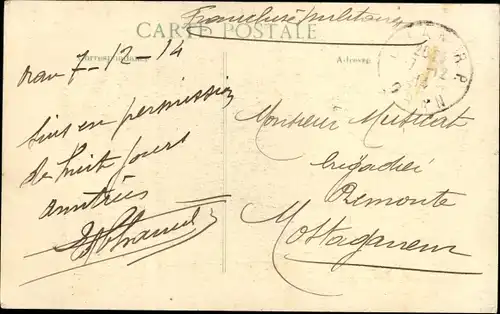 Franchise militaire
CARTE POSTALE
Correspondance
Adresse
Oran 7-12-14
suis en permission
de huit jours
amitiés
Monsieur
Brigadier
Remonte
Mostaganem